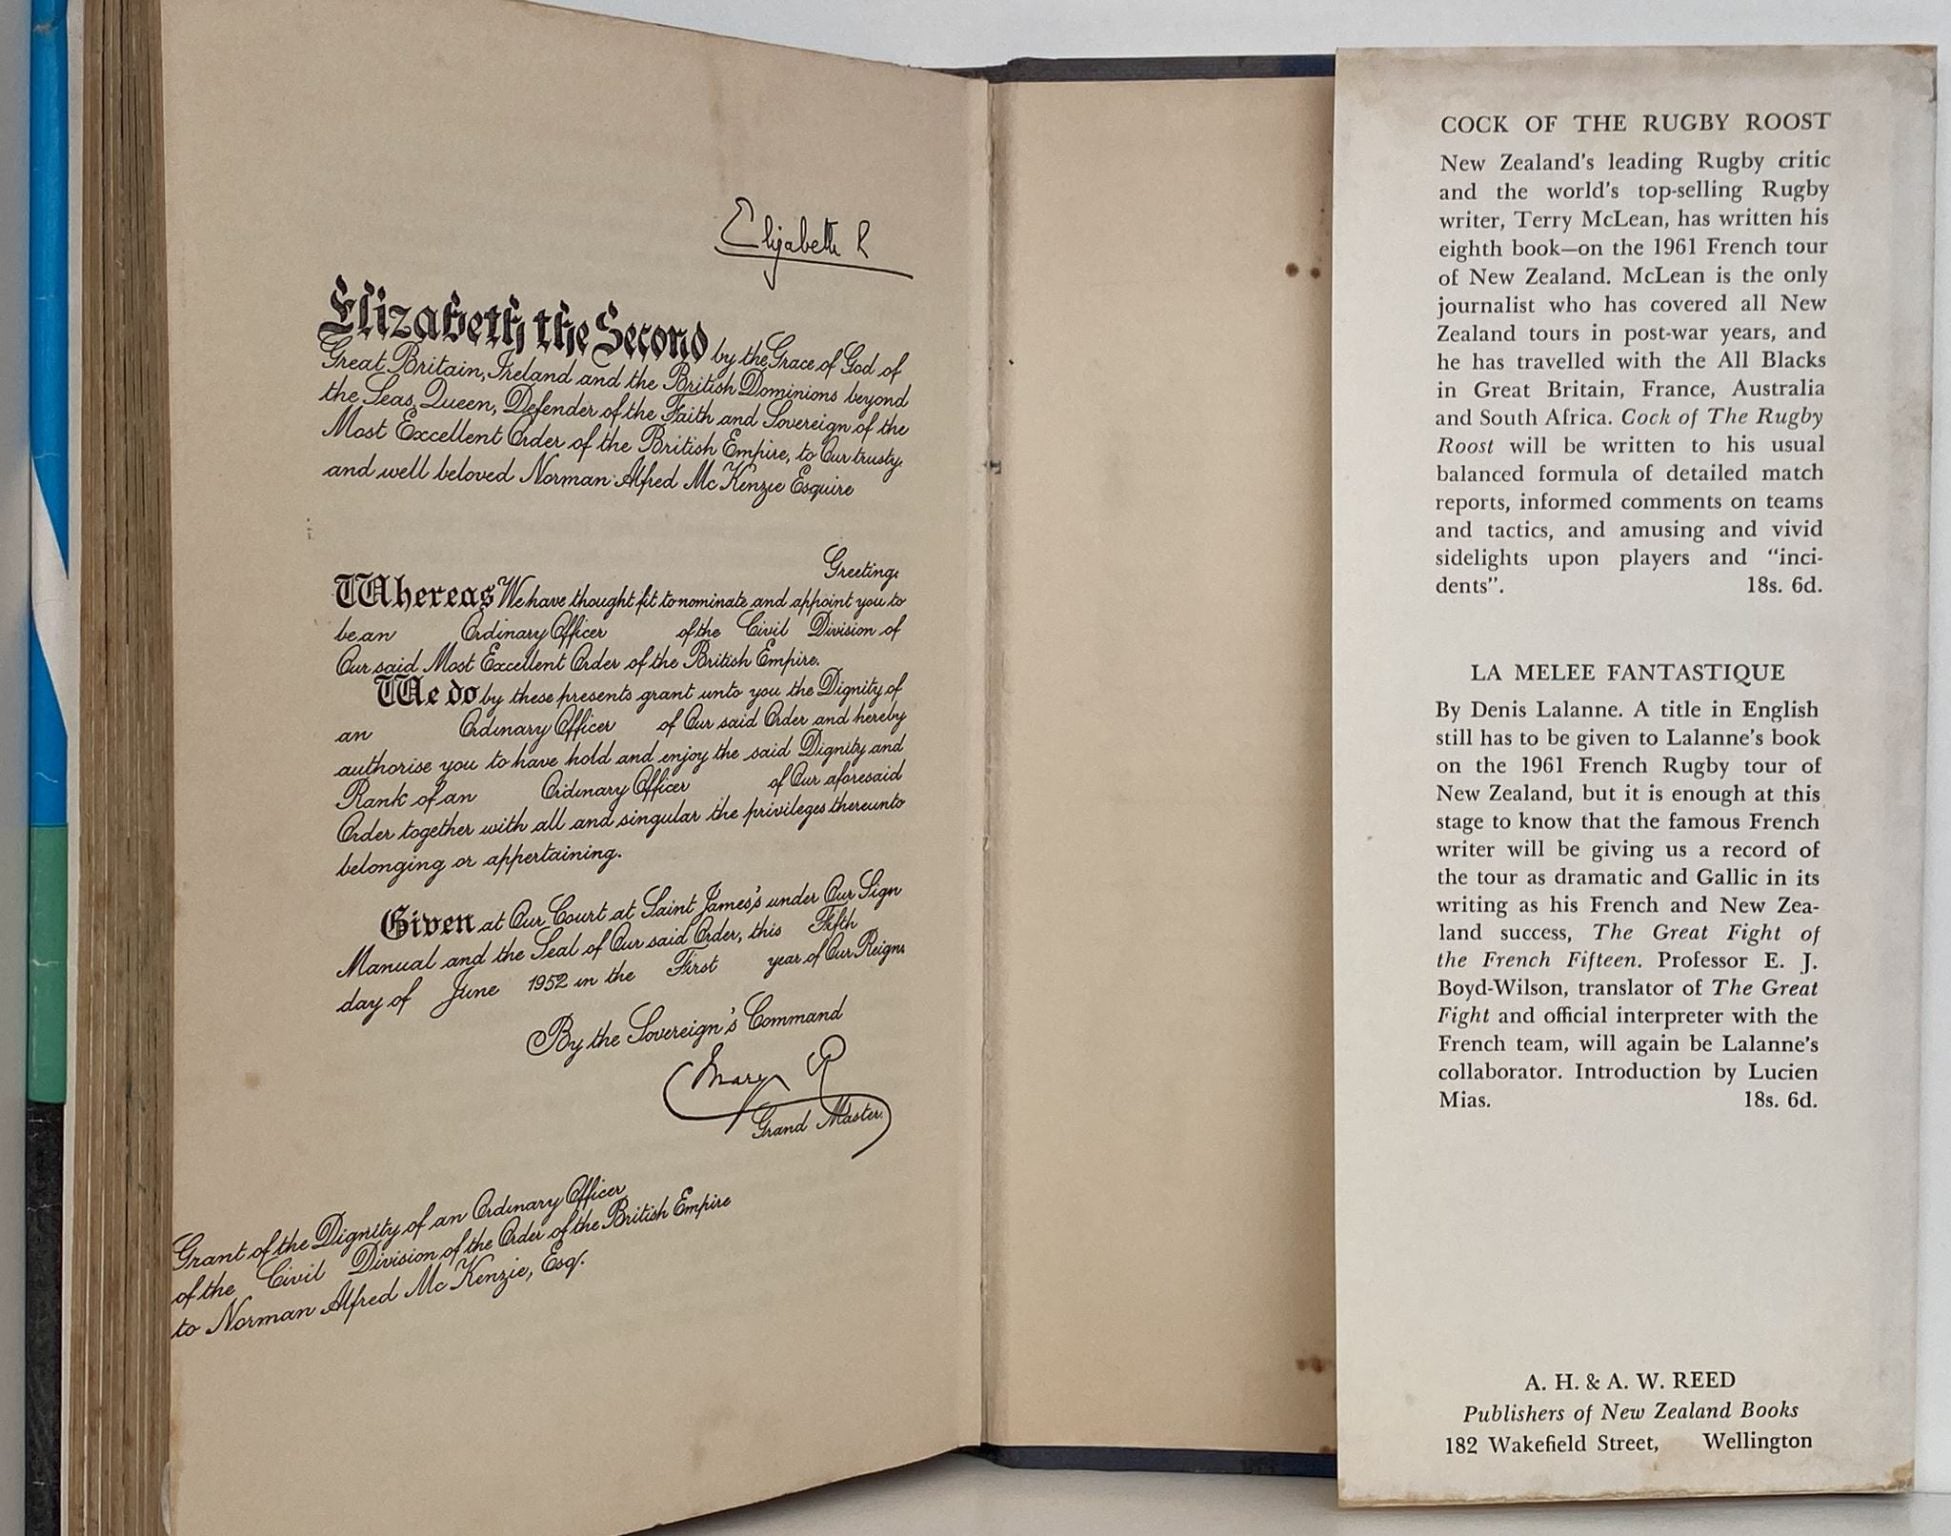 Elizabeth R
Elizabeth the Second by the Grace of God of
Great Britain, Ireland and the British Dominions beyond
the Seas, Queen, Defender of the Faith and Sovereign of the
Most Excellent Order of the British Empire, to Our trusty
and well beloved Norman Alfred McKenzie Esquire
Greeting
Whereas We have thought fit to nominate and appoint you to
be an Ordinary Officer of the Civil Division of
Our said Most Excellent Order of the British Empire.
We do by these presents grant unto you the Dignity of
an Ordinary Officer of Our said Order and hereby
authorise you to have hold and enjoy the said Dignity and
Rank of an Ordinary Officer of Our aforesaid
Order together with all and singular the privileges thereunto
belonging or appertaining.
Given at Our Court at Saint James's under Our Sign
Manual and the Seal of Our said Order, this Fifth
day of June 1952 in the First year of Our Reign.
By the Sovereign's Command
Mary R
Grand Master.
Grant of the Dignity of an Ordinary Officer
of the Civil Division of the Order of the British Empire
to Norman Alfred McKenzie, Esq.
COCK OF THE RUGBY ROOST
New Zealand's leading Rugby critic
and the world's top-selling Rugby
writer, Terry McLean, has written his
eighth book—on the 1961 French tour
of New Zealand. McLean is the only
journalist who has covered all New
Zealand tours in post-war years, and
he has travelled with the All Blacks
in Great Britain, France, Australia
and South Africa. Cock of The Rugby
Roost will be written to his usual
balanced formula of detailed match
reports, informed comments on teams
and tactics, and amusing and vivid
sidelights upon players and "inci-
dents". 18s. 6d.
LA MELEE FANTASTIQUE
By Denis Lalanne. A title in English
still has to be given to Lalanne's book
on the 1961 French Rugby tour of
New Zealand, but it is enough at this
stage to know that the famous French
writer will be giving us a record of
the tour as dramatic and Gallic in its
writing as his French and New Zea-
land success, The Great Fight of
the French Fifteen. Professor E. J.
Boyd-Wilson, translator of The Great
Fight and official interpreter with the
French team, will again be Lalanne's
collaborator. Introduction by Lucien
Mias. 18s. 6d.
A. H. & A. W. REED
Publishers of New Zealand Books
182 Wakefield Street, Wellington